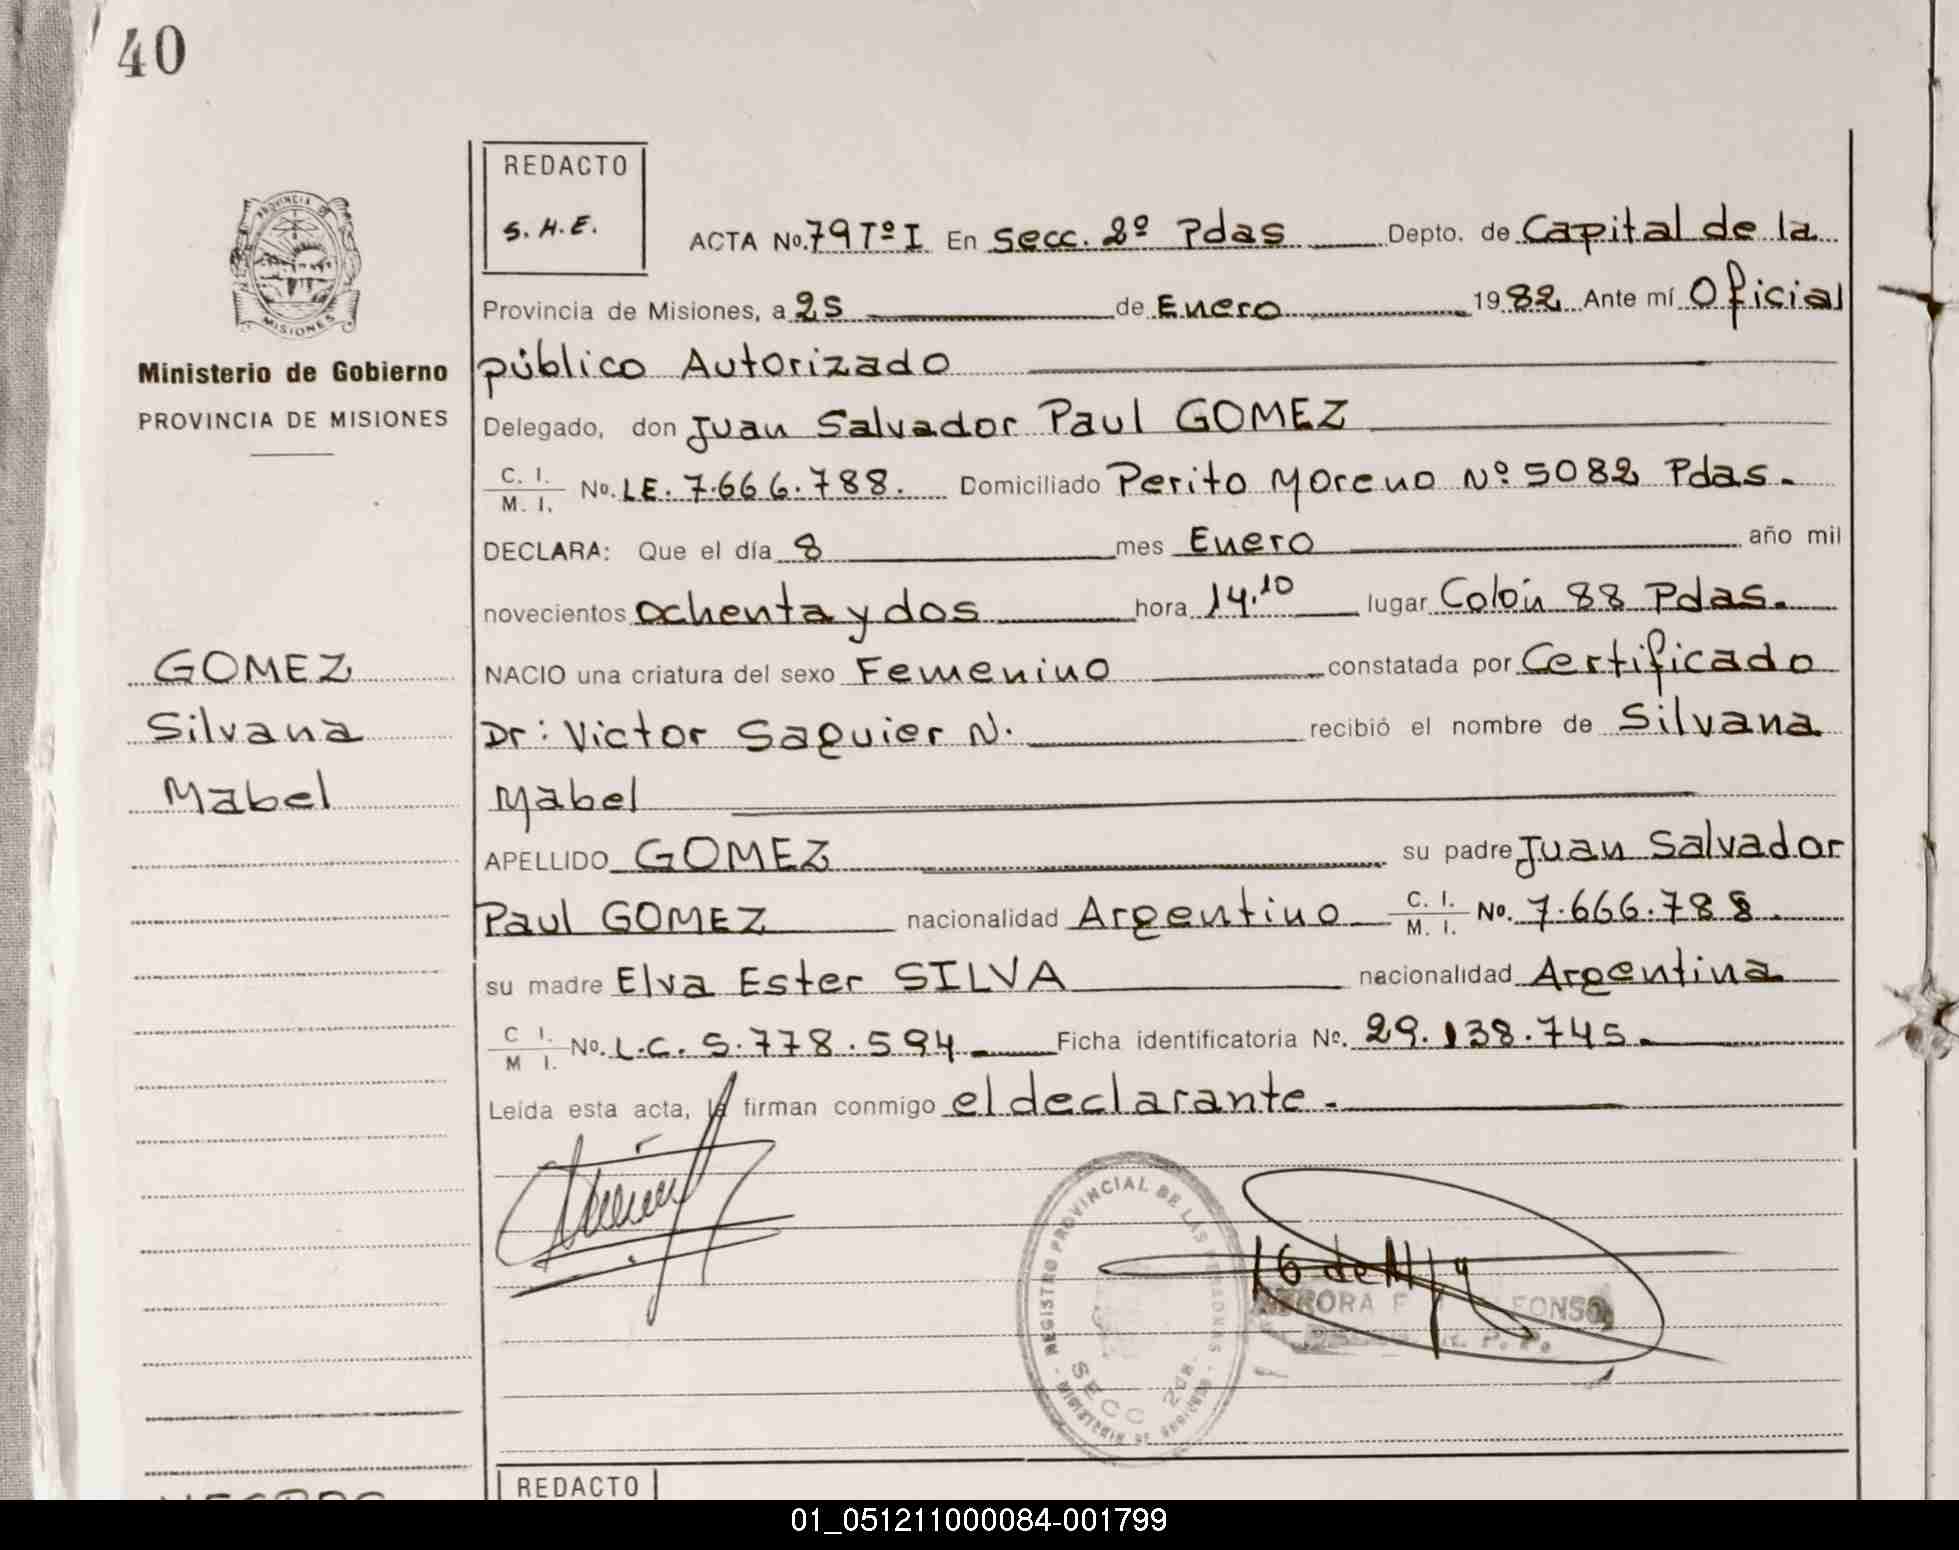 40
REDACTO
S.H.E.
PROVINCIA DE
MISIONES
Ministerio de Gobierno
PROVINCIA DE MISIONES
ACTA No. 79 Tº I En Secc. 2º Pdas Depto. de Capital de la
Provincia de Misiones, a 25 de Enero 1982 Ante mí Oficial
público Autorizado
Delegado, don Juan Salvador Paul GOMEZ
C. I. / M. I. No. LE. 7.666.788. Domiciliado Perito Moreno Nº 5082 Pdas.
DECLARA: Que el día 8 mes Enero año mil
novecientos ochenta y dos hora 14.10 lugar Colón 88 Pdas.
GOMEZ
Silvana
Mabel
NACIO una criatura del sexo Femenino constatada por Certificado
Dr: Victor Saguier N. recibió el nombre de Silvana
Mabel
APELLIDO GOMEZ su padre Juan Salvador
Paul GOMEZ nacionalidad Argentino C. I. / M. I. No. 7.666.788.
su madre Elva Ester SILVA nacionalidad Argentina
C I. / M I. No. L.C. 5.778.594 Ficha identificatoria No. 29.138.745.
Leída esta acta, la firman conmigo el declarante.
REGISTRO PROVINCIAL DE LAS PERSONAS
SECC 2
MINISTERIO DE GOBIERNO
REDACTO
01_051211000084-001799